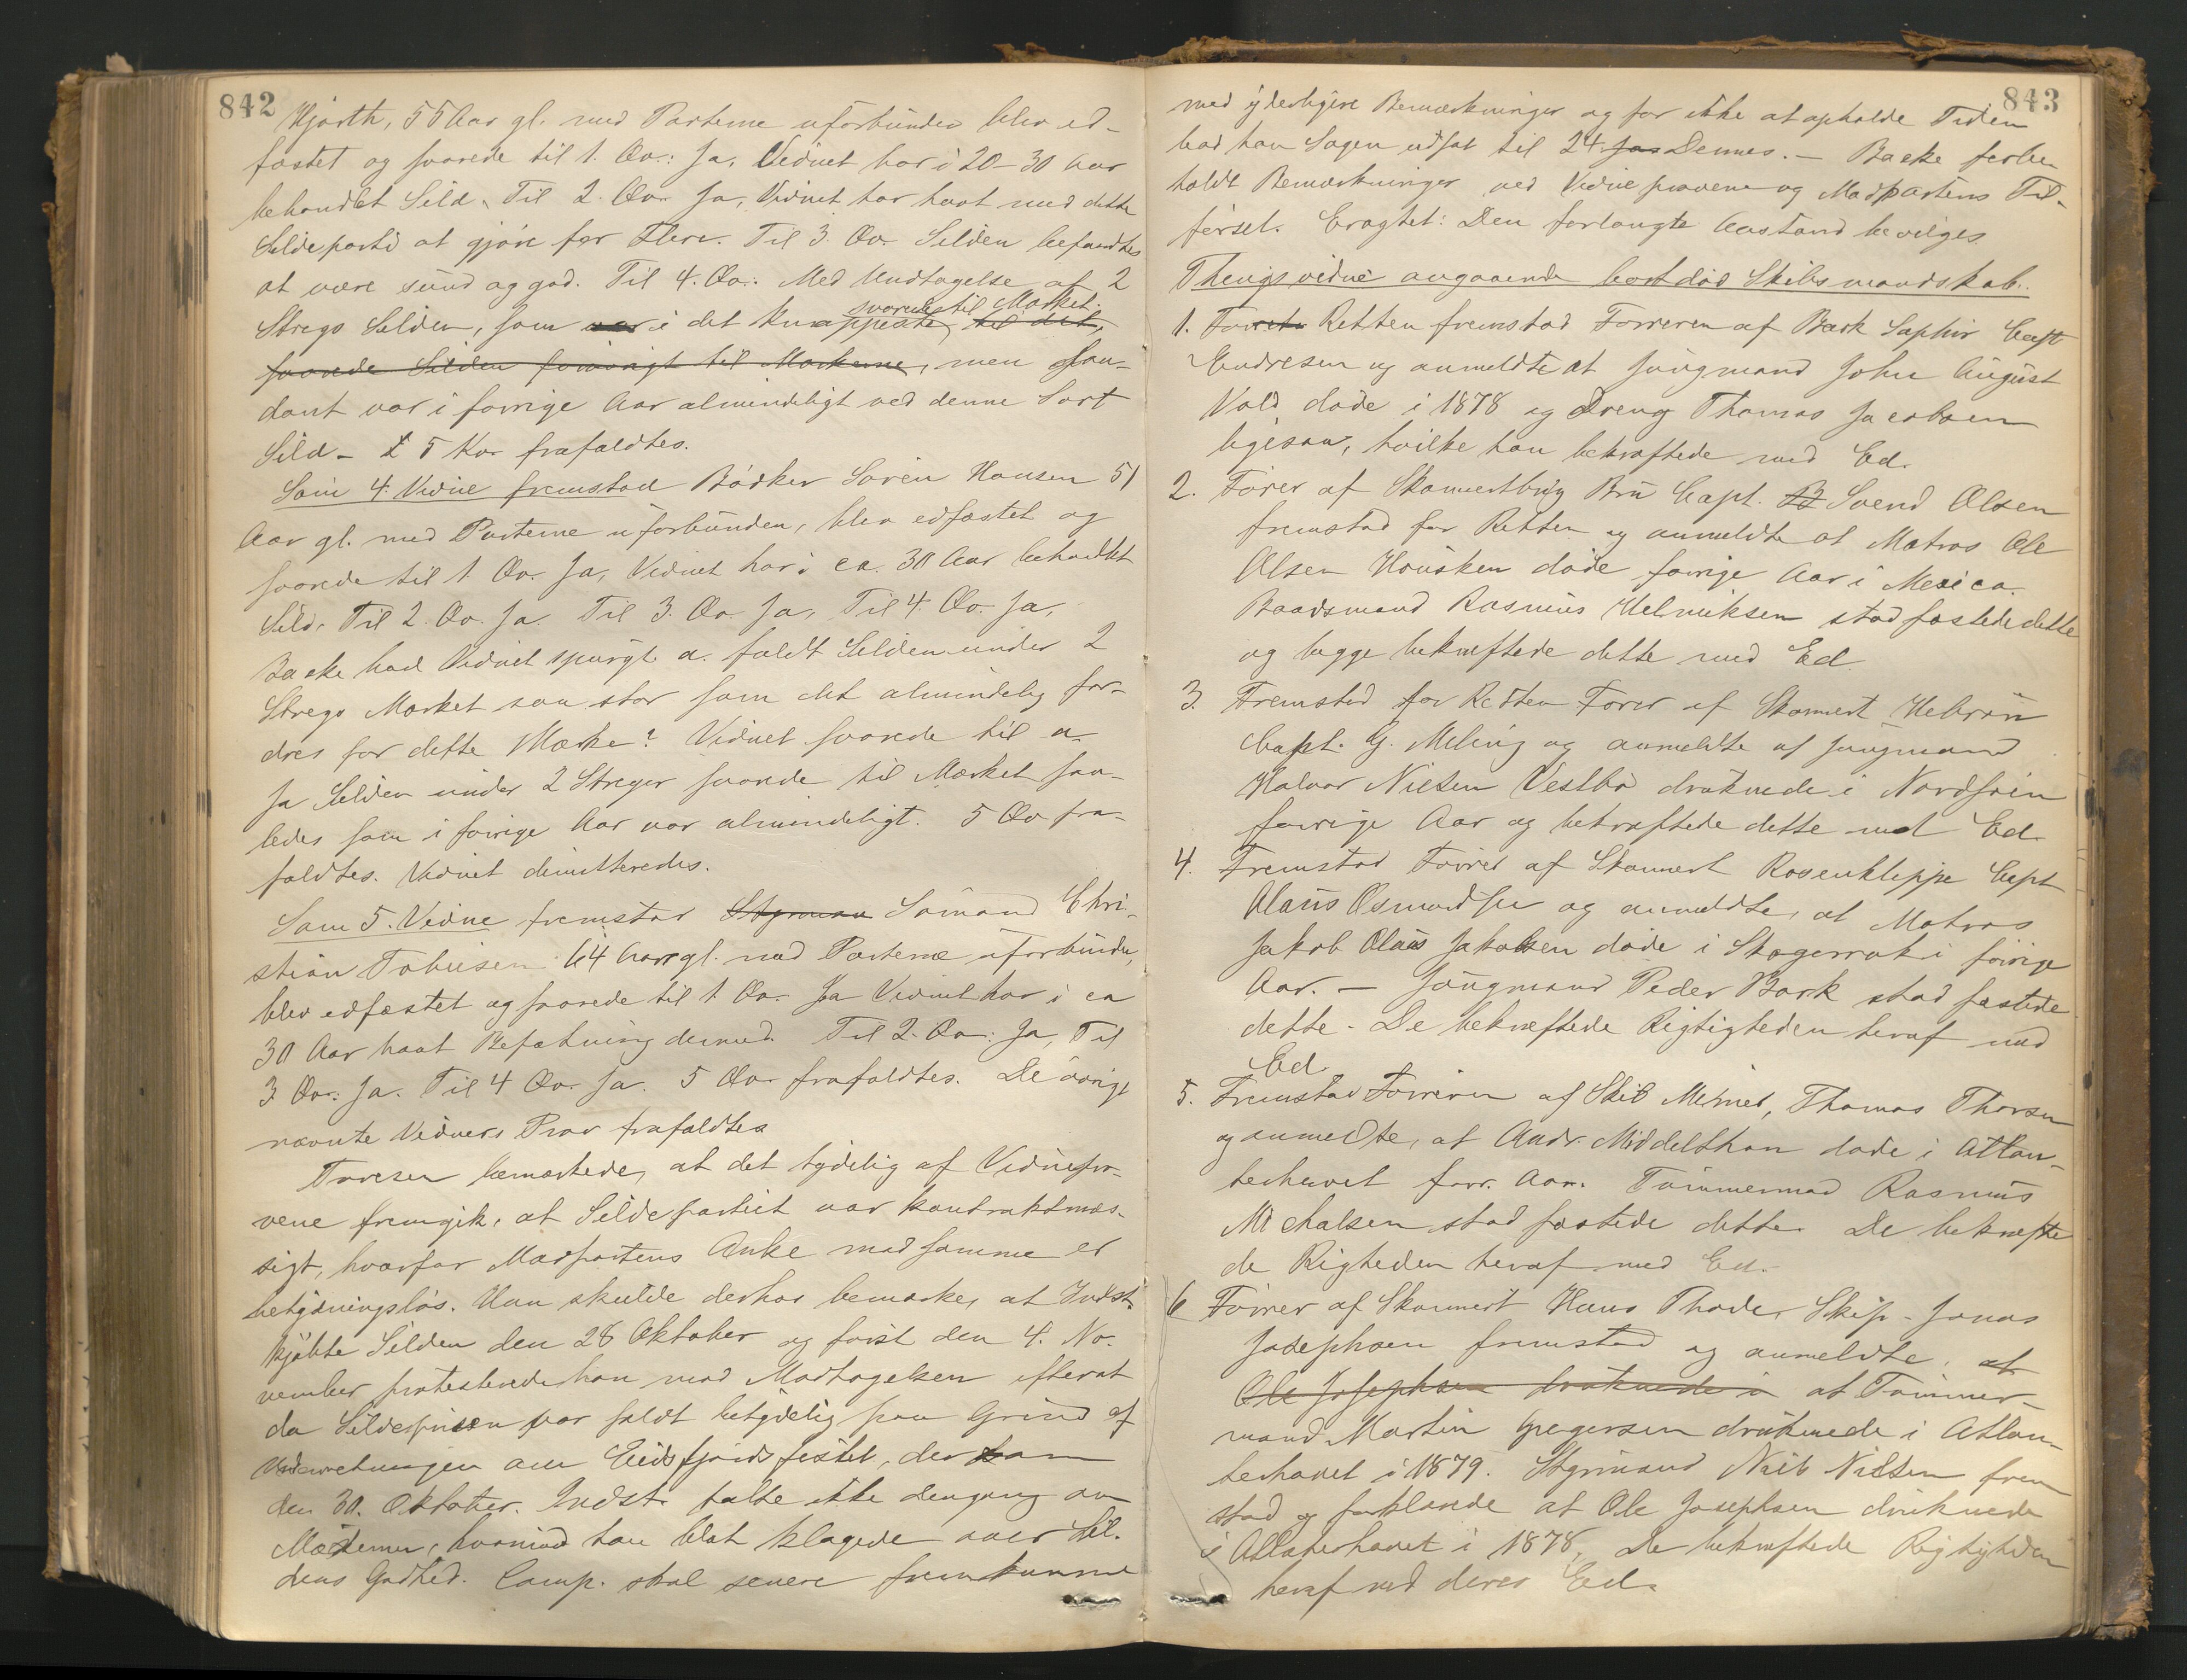 842
Hjorth, 55 Aar gl. med Parterne uforbunden blev ed-
fæstet og svarede til 1. Qv.: Ja, Vidnet har i 20-30 Aar
behandlet Sild. Til 2. Qv. Ja, Vidnet har havt med dette
Sildeparti at gjöre før Flere. Til 3. Qv. Silden befandtes
at være sund og god. Til 4. Qv.: Med Undtagelse af 2
svarede til Mærket.
Stregs Silden, som var i det knappeste, til det,
svarede Silden forövrigt til Mærkerne, men saa-
dant var i forrige Aar almindeligt ved denne Sort
Sild - 5 Kv. frafaldtes.
Som 4. Vidne fremstod Bödker Sören Hansen 51
Aar gl. med Parterne uforbunden, blev edfæstet og
svarede til 1 Qv. Ja, Vidnet har i ca. 30 Aar behandlet
Sild. Til 2. Qv. Ja. Til 3. Qv. Ja, Til 4. Qv. Ja,
Backe bad Vidnet spurgt a. faldt Silden under 2
Stregs Mærket saa stor som det almindelig for-
dres for dette Mærke? Vidnet svarede til a.
Ja Silden under 2 Streger svarede til Mærket saa-
ledes som i forrige Aar var almindeligt. 5 Qv fra-
faldtes. Vidnet dimitteredes.
Som 5. Vidne fremstod Styrmand Sömand Chri-
stian Tobiesen 64 Aar gl. med Parterne uforbunden,
blev edfæstet og svarede til 1 Qv. Ja Vidnet har i ca
30 Aar havt Befatning dermed. Til 2. Qv.: Ja, Til
3 Qv.: Ja. Til 4 Qv. Ja. 5 Qv. frafaldtes. De övrige
nævnte Vidners Prov frafaldtes
Toresen bemærkede, at det tydelig af Vidnepro-
vene fremgik, at Sildepartiet var kontraktmæs-
sigt, hvorfor Modpartens Anke mod samme er
betydningslös. Han skulde derhos bemærke, at Indst.
kjöbte Silden den 28 Oktober og först den 4. No-
vember protesterede han mod Modtagelsen efterat
da Sildeprisen var faldt betydelig paa Grund af
Underretningen om Eidsfjordfisket, der kom
den 30. Oktober. Indst. talte ikke dengang om
Mærkerne, hvorimod han blot klagede over Sil-
dens Godhed. Comp. skal senere fremkomme
843
med yderligere Bemærkninger og for ikke at opholde Tiden
bad han Sagen udsat til 24 Jan Dennes. - Backe forbe-
holdt Bemærkninger ved Vidneprovene og Modpartens Til-
försel. Eragtet: Den forlangte Anstand bevilges
Thingsvidne angaaende bortdöd Skibsmandskab.
1. For Retten fremstod Föreren af Bark Saphir Capt
Endresen og anmeldte at Jungmand John August
Vold döde i 1878 og Dreng Thomas Jacobsen
ligesaa, hvilke han bekræftede med Ed.
2. Förer af Skonnertbrig Bru Capt. Svend Olsen
fremstod for Retten og anmeldte at Matros Ole
Olsen Housken döde forrige Aar i Mexico.
Baadsmand Rasmus Helmiksen stadfæstede dette
og begge bekræftede dette med Ed
3. Fremstod for Retten Förer af Skonnert Hebron
Capt. G. Meling og anmeldte at Jungmand
Halvor Nielsen Vestbö druknede i Nordsöen
forrige Aar og bekræftede dette med Ed.
4. Fremstod Förer af Skonnert Rosenkleppe Capt
Olaus Osmundsen og anmeldte, at Matros
Jakob Olaus Jakobsen döde i Skagerrak i forrige
Aar. - Jungmand Peder Bork stadfæstede
dette - De bekræftede Rigtigheden heraf med
Ed.
5. Fremstod Föreren af Skib Mimer, Thomas Thorsen
og anmeldte, at Andr. Middelthon döde i Atlan-
terhavet forr. Aar. Tömmermand Rasmus
Michalsen stadfæstede dette. De bekræfte
de Righeden heraf med Ed.
6 Förer af Skonnert Hans Thode, Skip. Jonas
Josephsen fremstod og anmeldte, at
Ole Josephsen druknede i at Tömmer-
mand Martin Gregersen druknede i Atlan-
terhavet i 1879. Styrmand Neils Nielsen frem
stod og forklarede at Ole Josephsen druknede
i Atlanterhavet i 1878, De bekræftede Rigtigheden
heraf med deres Ed.